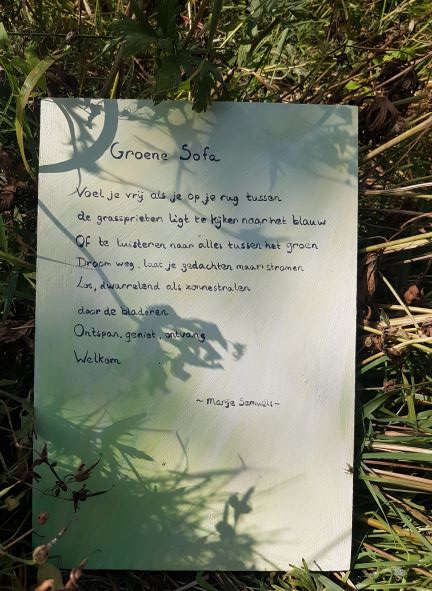 Groene Sofa
Voel je vrij als je op je rug tussen
de grassprieten ligt te kijken naar het blauw
Of te luisteren naar alles tussen het groen
Droom weg, laat je gedachten maar stromen
Los, dwarrelend als zonnestralen
door de bladeren
Ontspan, geniet, ontvang
Welkom
~ Marije Samuels ~